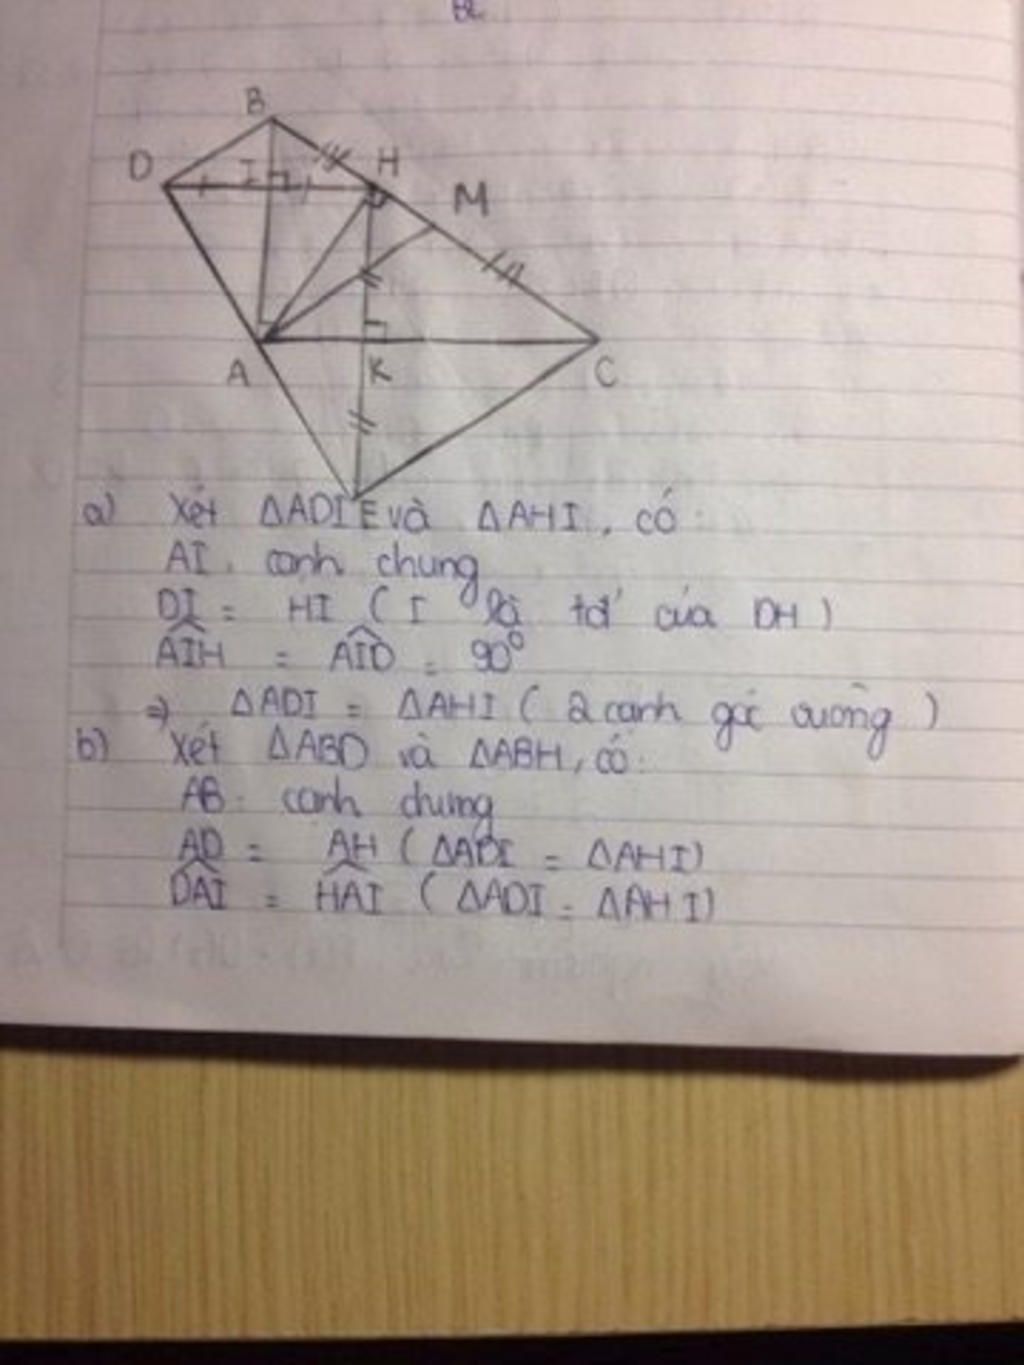 BL
B
D
I
H
M
A
K
C
E
a) Xét ΔADI và ΔAHI, có:
AI: cạnh chung
DI = HI ( I là tđ' của DH )
AIH = AID = 90°
=> ΔADI = ΔAHI ( 2 cạnh góc vuông )
b) Xét ΔABD và ΔABH, có:
AB: cạnh chung
AD = AH ( ΔADI = ΔAHI )
DAI = HAI ( ΔADI = ΔAHI )